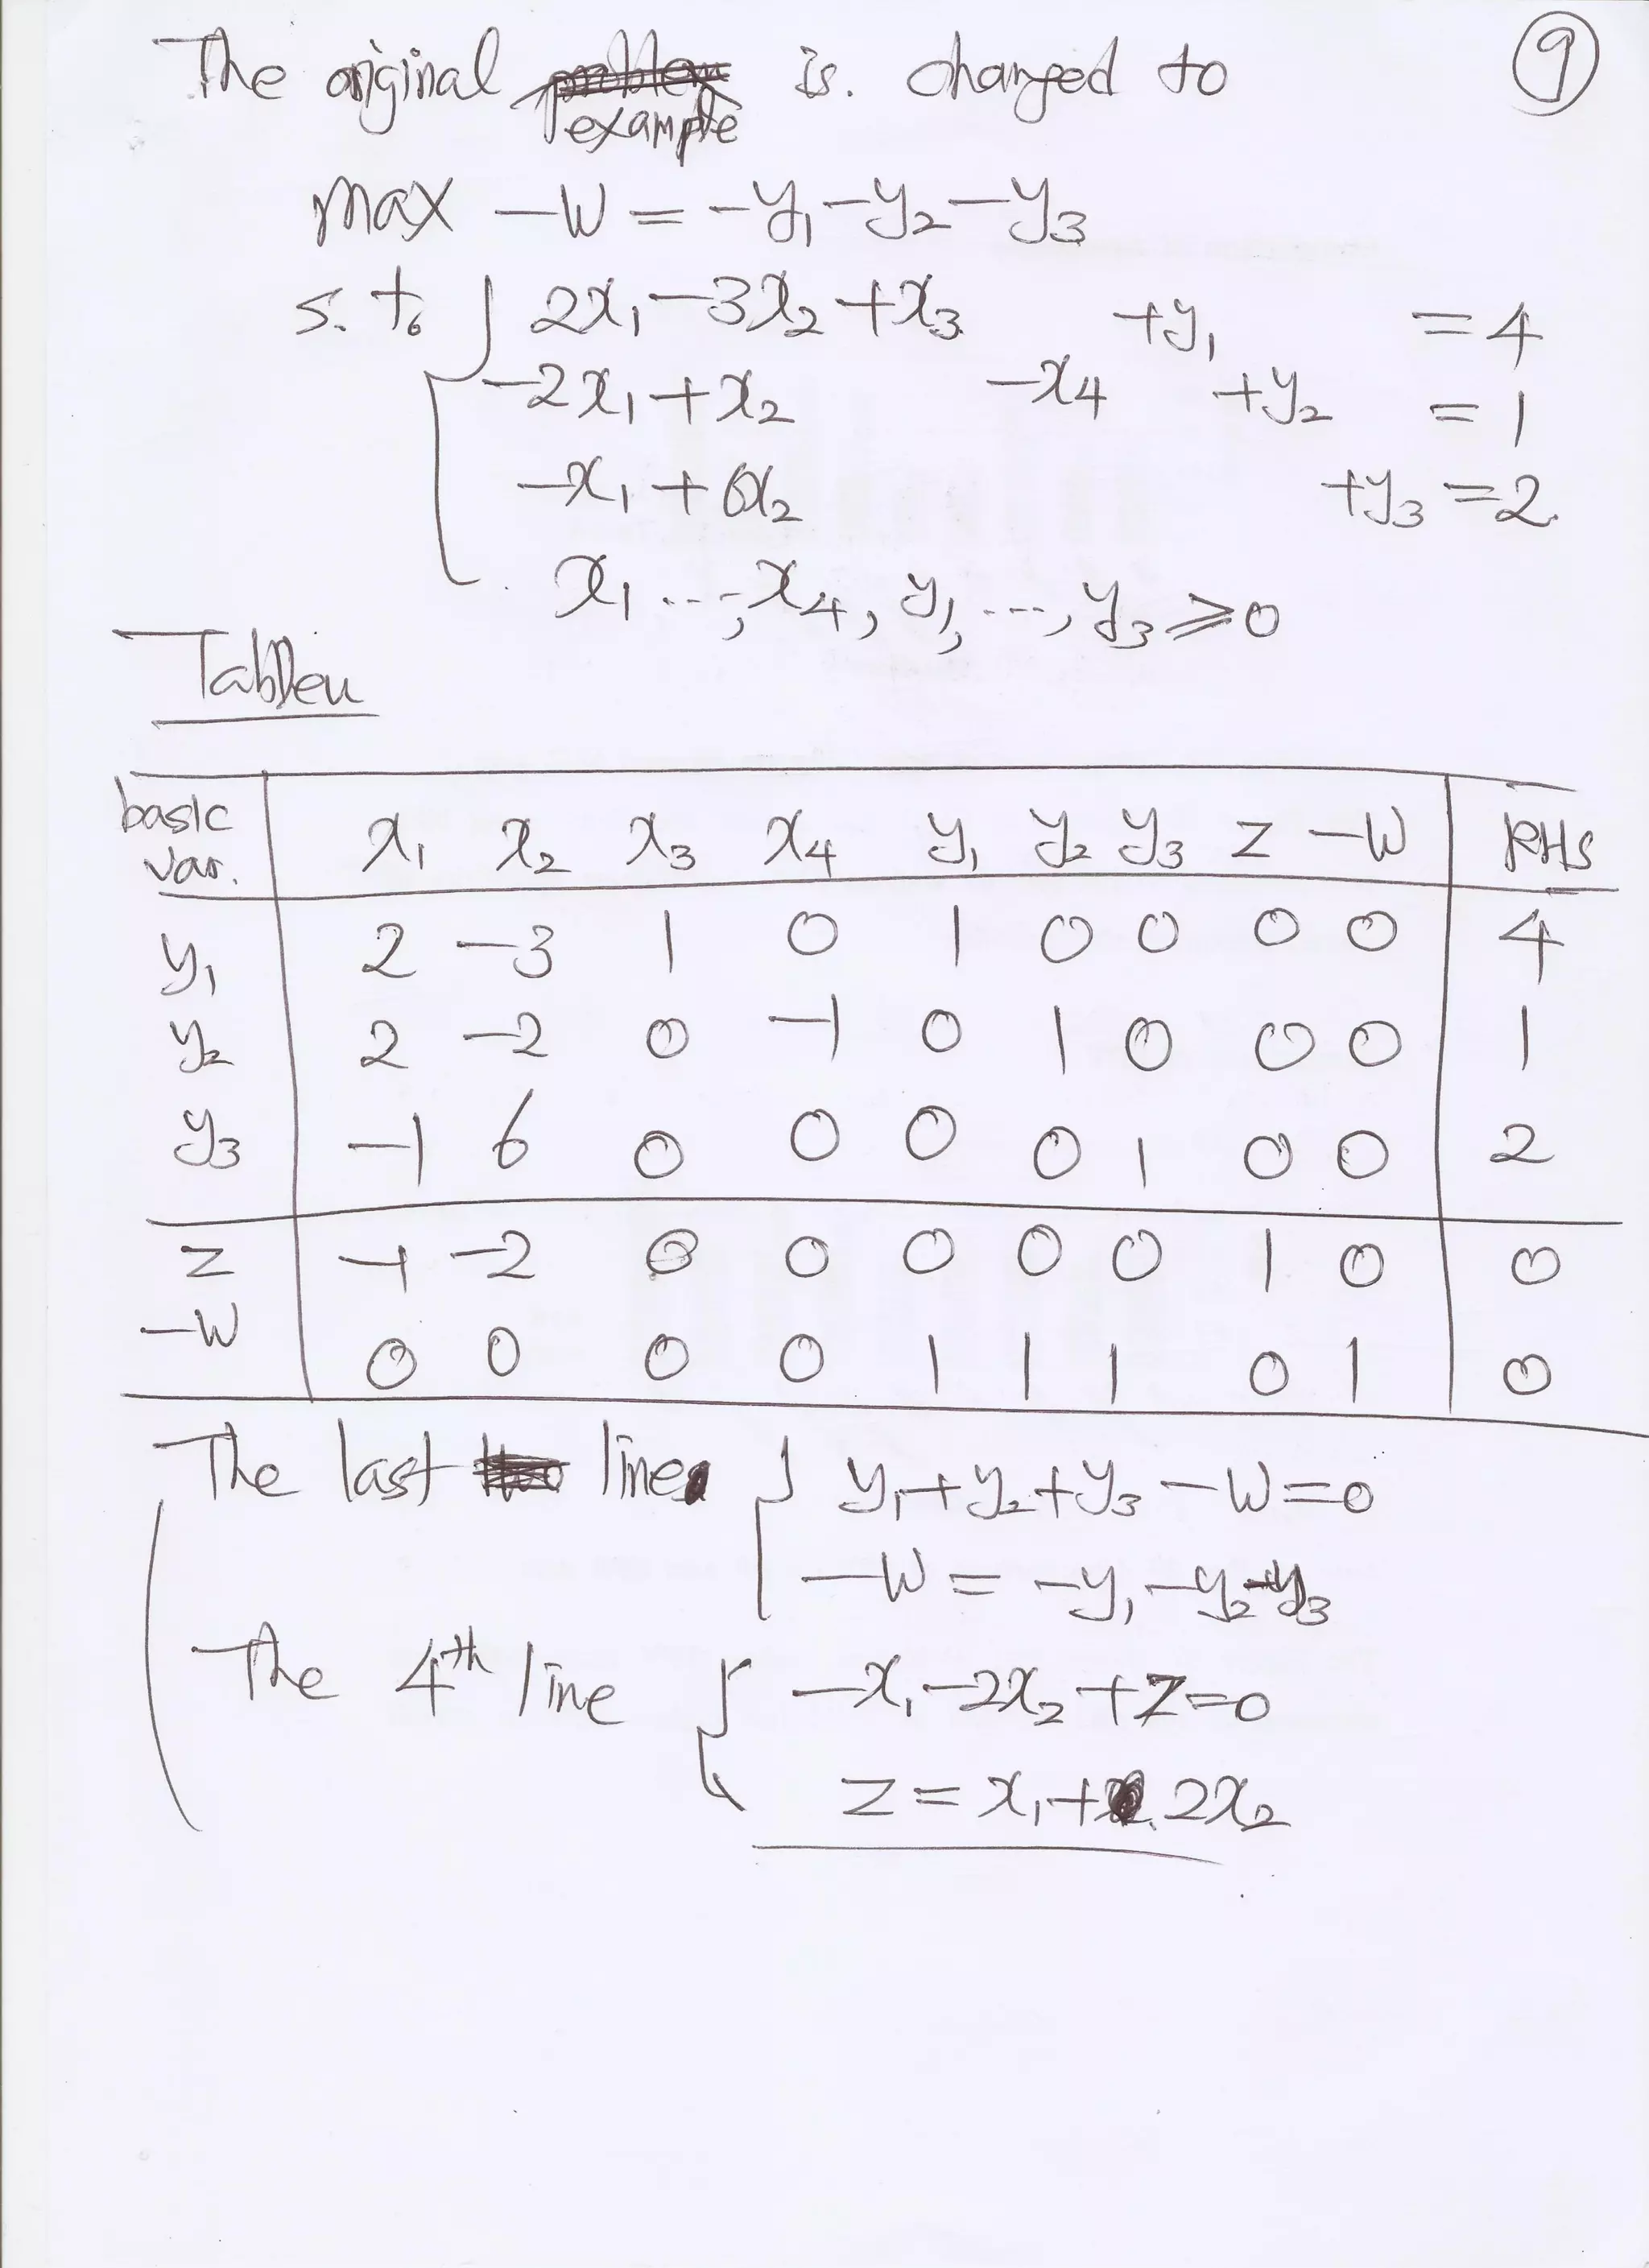 The original example is. changed to
9
max -W = -y₁ - y₂ - y₃
s. to 2x₁ - 3x₂ + x₃ + y₁ = 4
-2x₁ + x₂ - x₄ + y₂ = 1
-x₁ + 6x₂ + y₃ = 2.
x₁ ..., x₄, y₁, ..., y₃ ≥ 0
Tableu
basic var. x₁ x₂ x₃ x₄ y₁ y₂ y₃ z -W RHS
y₁ 2 -3 1 0 1 0 0 0 0 4
y₂ 2 -2 0 -1 0 1 0 0 0 1
y₃ -1 6 0 0 0 0 1 0 0 2
z -1 -2 0 0 0 0 0 1 0 0
-W 0 0 0 0 1 1 1 0 1 0
The last line y₁ + y₂ + y₃ - W = 0
-W = -y₁ - y₂ - y₃
The 4th line -x₁ - 2x₂ + z = 0
z = x₁ + 2x₂